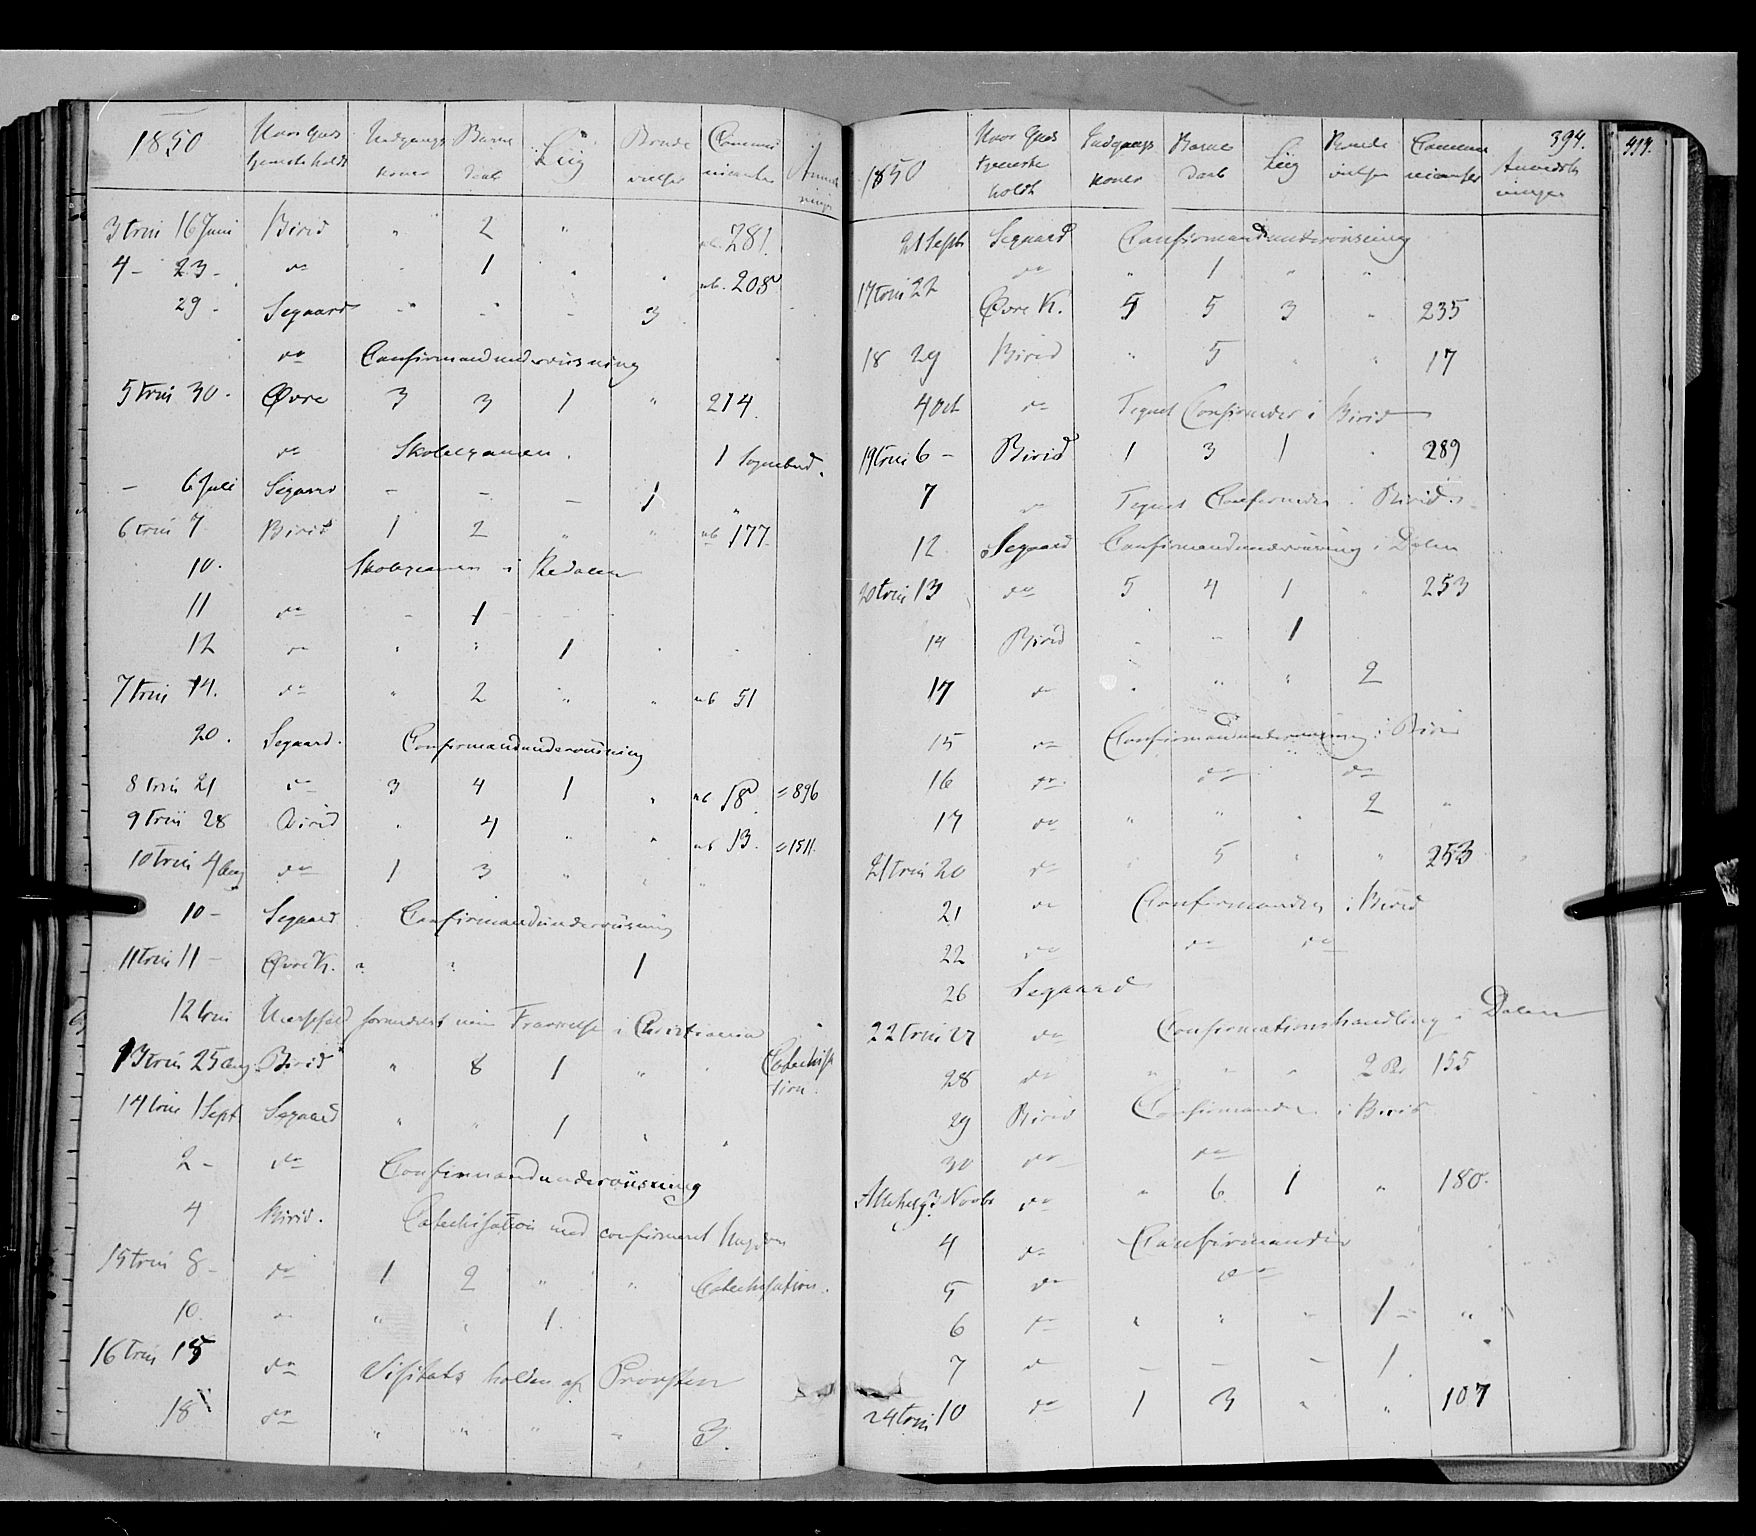 1850 Hvor Guds Indgangs Barne Liig Brude Commu Anmærk
tjeneste holdt koner daab vielser nicanter ninger
3 trin 16 Juni Birid " 2 " 281
4 - 23 - do - 1 " " nb. 208
29 - Segaard " " - 3
do Confirmandunderviisning
5 trin 30 - Øvre 3 3 1 " 214
do Skoleexamen. 1 Sognebud.
- 6 Juli Segaard - - - 1 "
6 trin 7 Birid 1 2 " " nb 177
10. Skolexamen i Redalen
11 do - 1 -
12 do " " 1
7 trin 14. do " 2 " " nb 51
20. Segaard. Confirmandunderviisning
8 trin 21 do 3 4 1 " nb 18 = 896
9 trin 28 Birid " 4 " " nb 13. = 1511.
10 trin 4 Aug do 1 3 " " "
10 - Segaard Confirmandunderviisning
11 trin 11 - Øvre K. " " 1
12 trin Messefald formedelst min Fraværelse i Christiania
13 trin 25 Aug. Birid " 8 1 " " Catechisa
tion.
14 trin 1 Sept Segaard " " 1 " "
2 - do Confirmandunderviisning
4 Birid. Catechisation med confirmeret Ungdom
15 trin 8 - do 1 2 " " Catechisation.
10. do " " 1.
16 trin 15 do Visitats holden af Provsten
18 do " " " " 3.
394.
1850 Hvor Guds Indgangs Barne Liig Brude Commu Anmærk
tjeneste holdt koner daab vielser nicanter ninger
21 Sept Segaard Confirmandunderviisning
17 trin 22 do " 1 " "
Øvre K. 5 5 3 " 235
18 29 Birid " 5 " " 17
4 Oct do Tegnet Confirmander i Birid
19 trin 6 - Birid 1 3 1 " 289
7 do Tegnet Confirmander i Birid.
12 Segaard Confirmandunderviisning i Dalen
20 trin 13 do 5 4 1 " 253
14 Birid - - 1
17 do " " " 2
15 do Confirmandunderviisning i Birid
16 do do do
17 do " " " 2 "
21 trin 20 do " 5 " " 253
21 do Confirmander i Birid
22 do do do
26 Segaard
22 trin 27 do Confirmationshandling i Dalen
28 do " " " 2 Par 155
29 Birid Confirmander i Birid
30 do do
Allehelg. 3 Novbr do " 6 1 " 180.
4 do Confirmander
5 do do
6 do " " " 1 - "
7 do - - - 1.
24 trin 10 do 1 3 " " 107